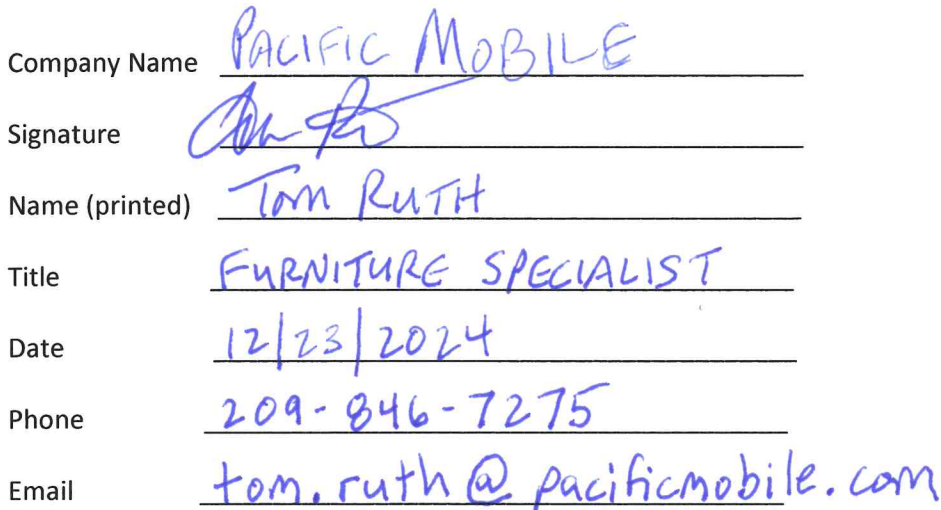 Company Name PACIFIC MOBILE
Signature
Name (printed) Tom RUTH
Title FURNITURE SPECIALIST
Date 12/23/2024
Phone 209-846-7275
Email tom.ruth@pacificmobile.com